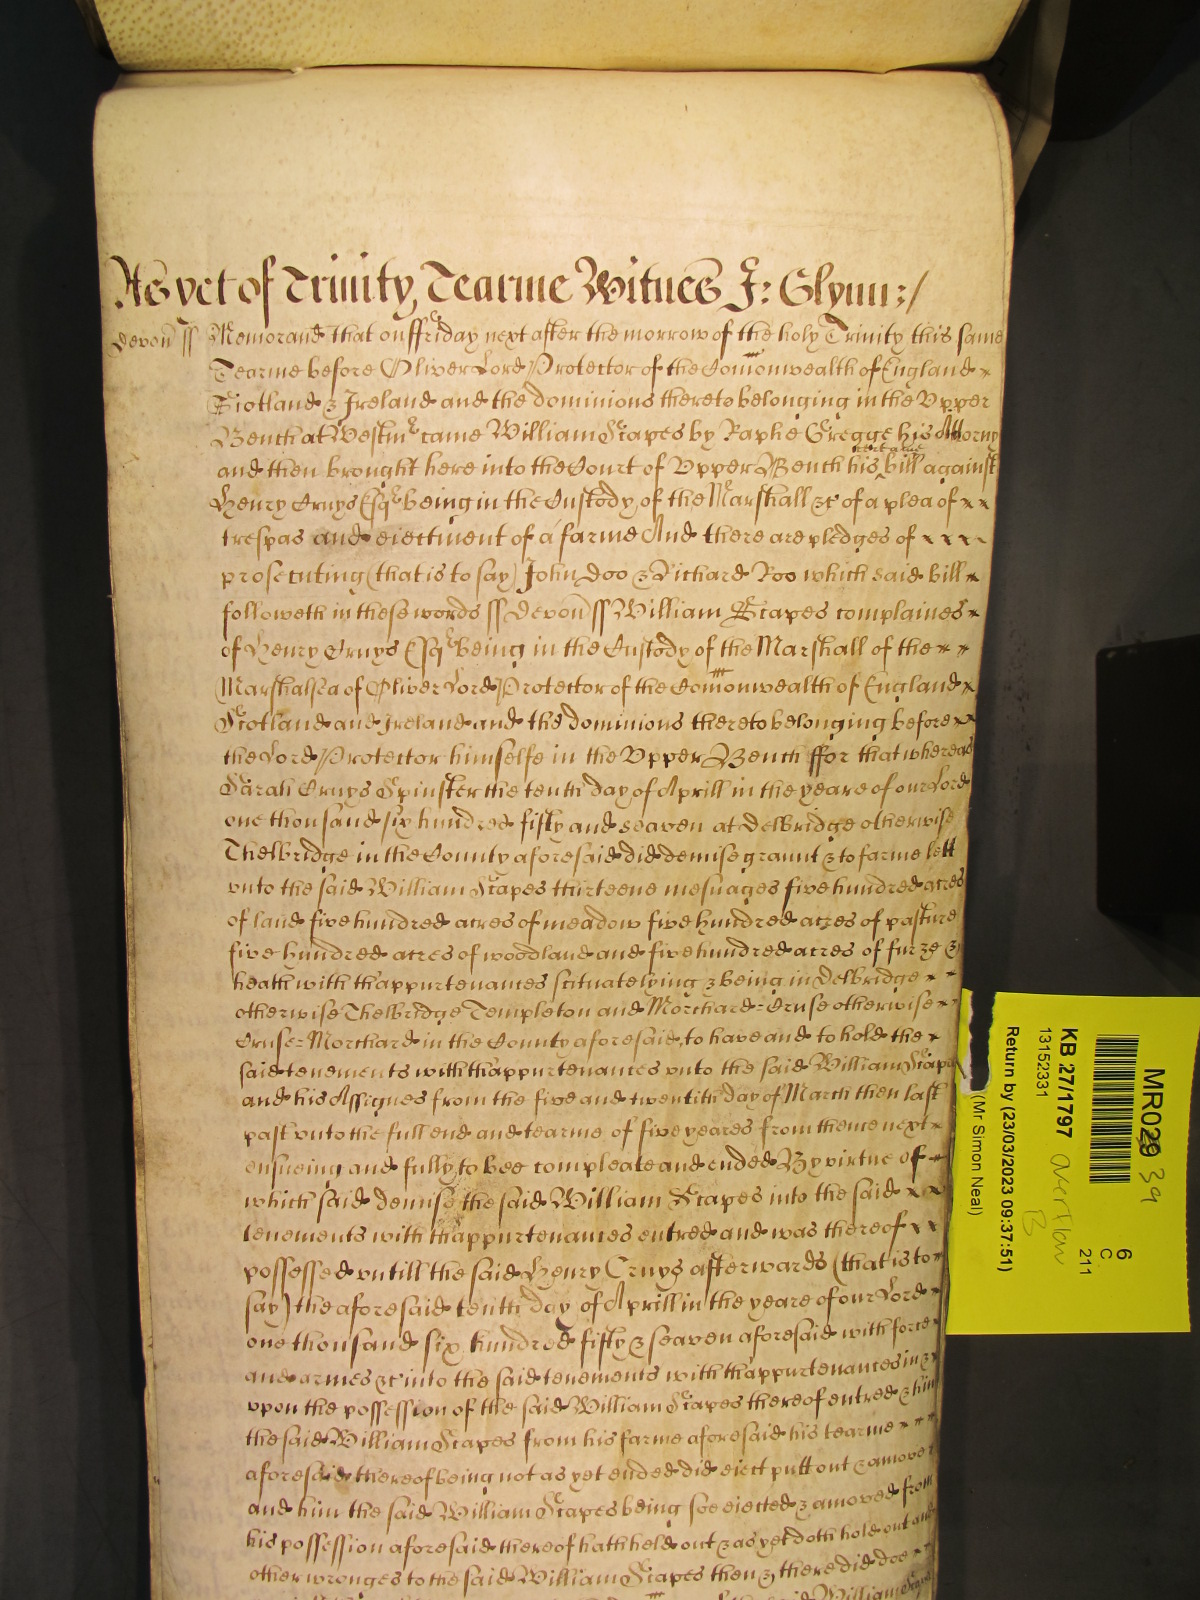 As yet of Trinity Tearme Witnes J: Glynn:/
Devon ss Memorand that on ffriday next after the morrow of the holy Trinity this same
Tearme before Oliver Lord Protector of the Comonwealth of England
Scotland & Ireland and the dominions thereto belonging in the Vpper
Bench at Westmr came William Scapes by Raphe Gregge his Attorny
and then brought here into the Court of Vpper Bench his certaine bill against
Henry Cruys Esqr being in the Custody of the Marshall &c of a plea of
trespas and eiectment of a farme And there are pledges of
prosecuting (that is to say) John Doo & Richard Roo which said bill
followeth in these words ss Devon ss William Scapes complaines
of Henry Cruys Esqr being in the Custody of the Marshall of the
Marshalsea of Oliver Lord Protector of the Comonwealth of England
Scotland and Ireland and the dominions thereto belonging before
the Lord Protector himselfe in the Vpper Bench ffor that whereas
Sarah Cruys Spinster the tenth day of Aprill in the yeare of our Lord
one thousand six hundred fifty and seaven at Delbridge otherwise
Thelbridge in the County aforesaid did demise graunt & to farme lett
vnto the said William Scapes thirteene mesuages five hundred acres
of land five hundred acres of meadow five hundred acres of pasture
five hundred acres of woodland and five hundred acres of furze &
heath with thappurtenances scituate lying & being in Delbridge
otherwise Thelbridge Templeton and Morchard=Cruse otherwise
Cruse=Morchard in the County aforesaid, to have and to hold the
said tenements with thappurtenances vnto the said William Scapes
and his Assignes from the five and twentith day of March then last
past vnto the full end and tearme of five yeares from thence next
ensueing and fully to bee compleate and ended By virtue of
which said demise the said William Scapes into the said
tenements with thappurtenances entred and was thereof
possessed vntill the said Henry Cruys afterwards (that is to
say) the aforesaid tenth day of Aprill in the yeare of our Lord
one thousand six hundred fifty & seaven aforesaid with force
and armes &c into the said tenements with thappurtenances in &
vpon the possession of the said William Scapes thereof entred & him
the said William Scapes from his farme aforesaid his tearme
aforesaid thereof being not as yet ended did eiect putt out & amove
and him the said William Scapes being soe eiected & amoved from
his possession aforesaid thereof hath held out & as yet doth hold out and
other wronges to the said William Scapes then & there did doe
MR029 39
KB 27/1797 overflow B
13152331
Return by (23/03/2023 09:37:51)
(Mr Simon Neal)
6
C
211